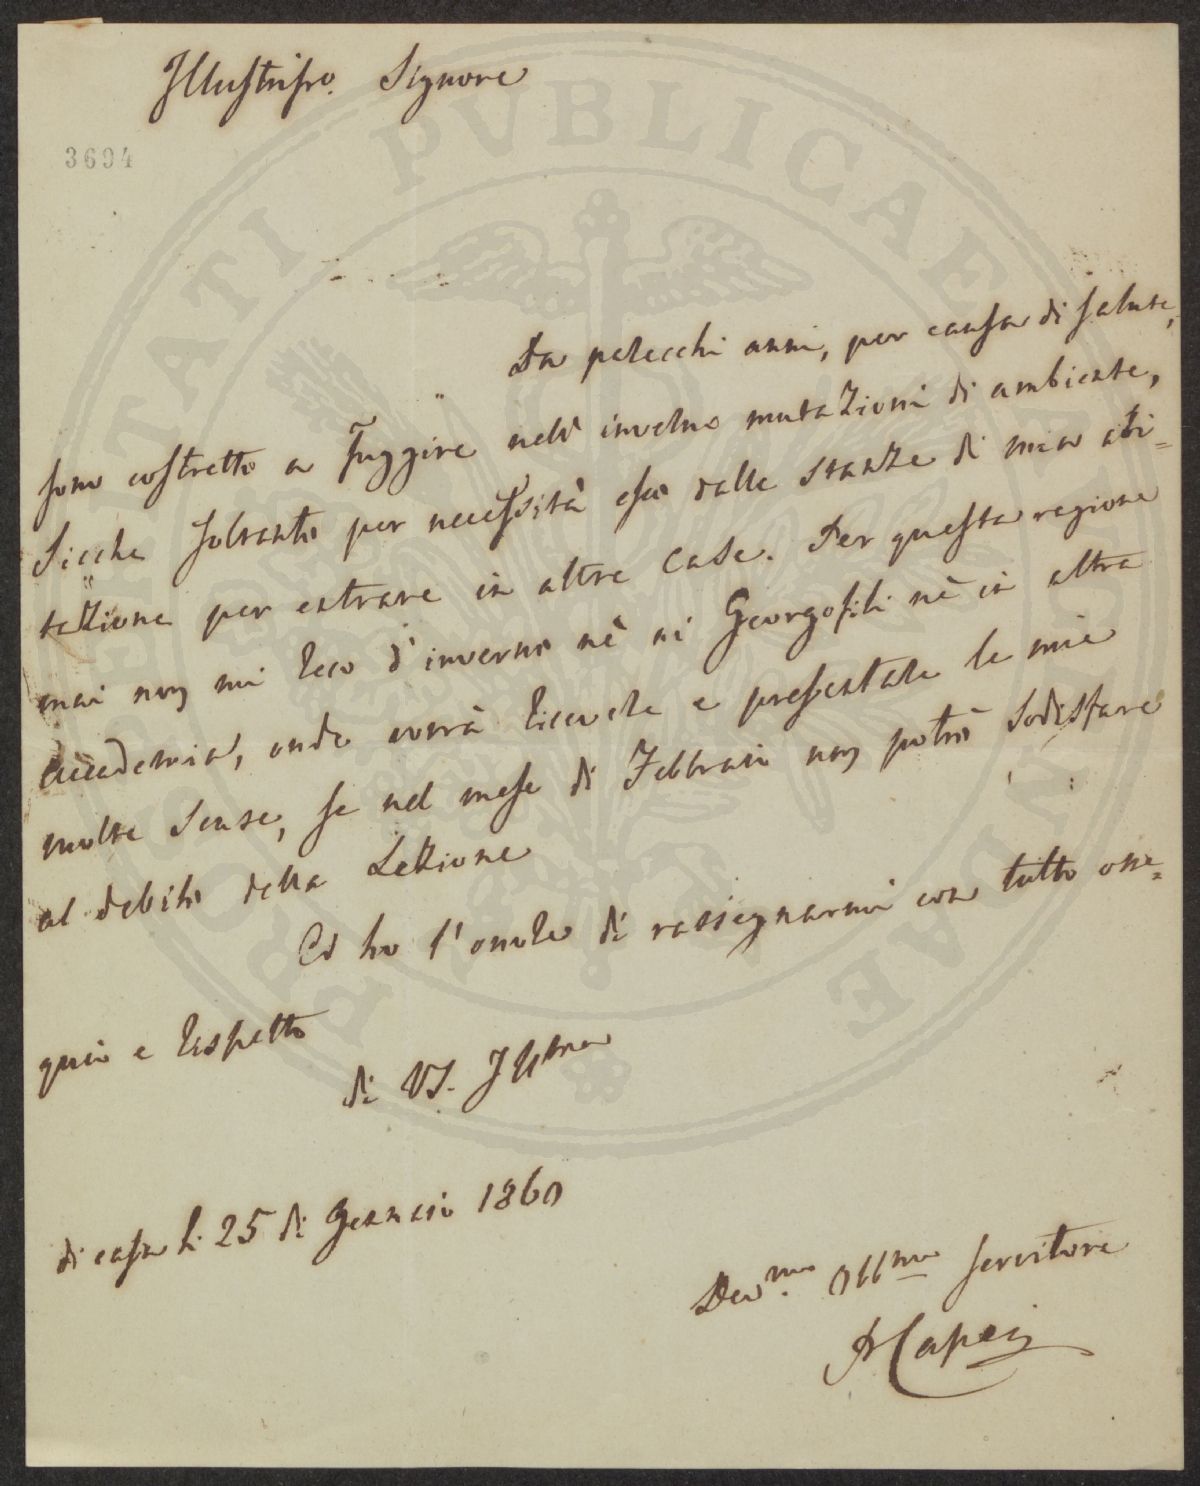 Illustrisso. Signore
3694
PROSPERITATI PUBLICAE AUGENDAE
Da parecchi anni, per causa di salute,
sono costretto a fuggire nell' inverno mutazioni di ambiente,
Sicche soltanto per necessità esco dalle stanze di mia abi=
tazione per entrare in altre case. Per questa ragione
mai non mi reco d'inverno nè ai Georgofili nè in altra
Accademia, onde vorrà ricevere e presentare le mie
molte scuse, se nel mese di Febbraio non potrò sodisfare
al debito della Lezione
Ed ho l'onore di rassegnarmi con tutto osse=
quio e rispetto
di VS. Illma
di casa li 25 di Gennaio 1860
Devmo. Obbmo servitore
P Capei